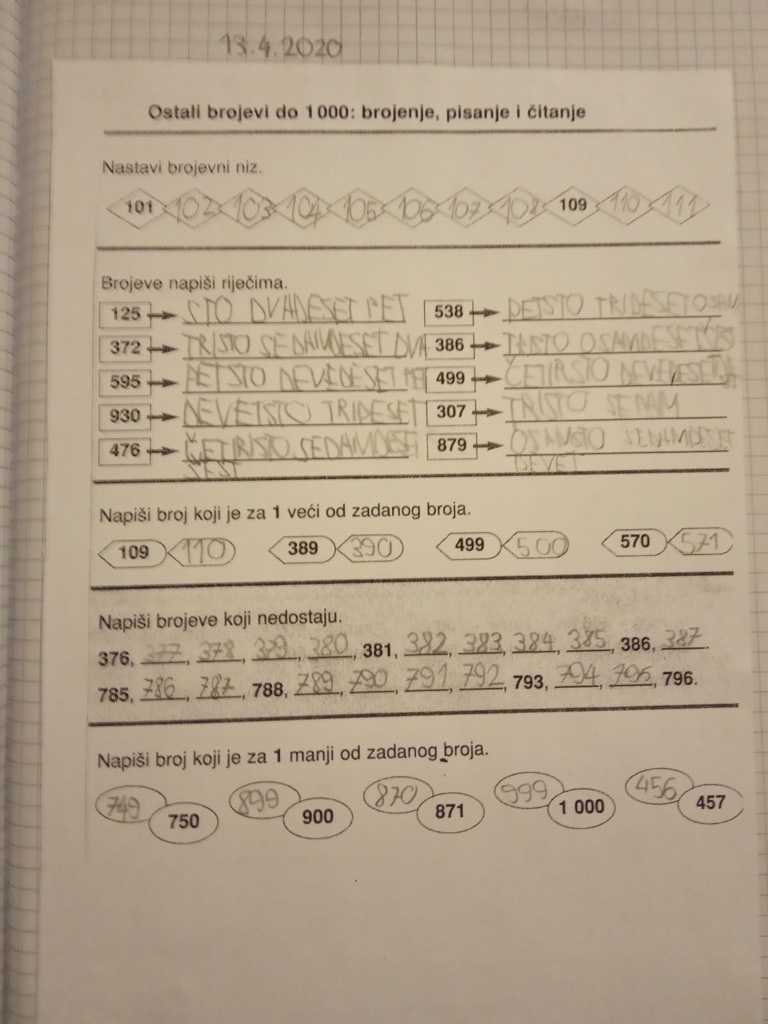 13.4.2020
Ostali brojevi do 1000: brojenje, pisanje i čitanje
Nastavi brojevni niz.
101 102 103 104 105 106 107 108 109 110 111
Brojeve napiši riječima.
125 STO DVADESET PET 538 PETSTO TRIDESET OSAM
372 TRISTO SEDAMDESET DVA 386 TRISTO OSAMDESET
595 PETSTO DEVEDESET PET 499 ČETIRSTO
930 DEVETSTO TRIDESET 307 TRISTO SEDAM
476 ČETIRISTO SEDAMDESE 879 OSAMSTO SEDAMDESET
ŠEST DEVET
Napiši broj koji je za 1 veći od zadanog broja.
109 110 389 390 499 500 570 571
Napiši brojeve koji nedostaju.
376, 377, 378, 379, 380, 381, 382, 383, 384, 385, 386, 387.
785, 786, 787, 788, 789, 790, 791, 792, 793, 794, 795, 796.
Napiši broj koji je za 1 manji od zadanog broja.
749 750 899 900 870 871 999 1 000 456 457